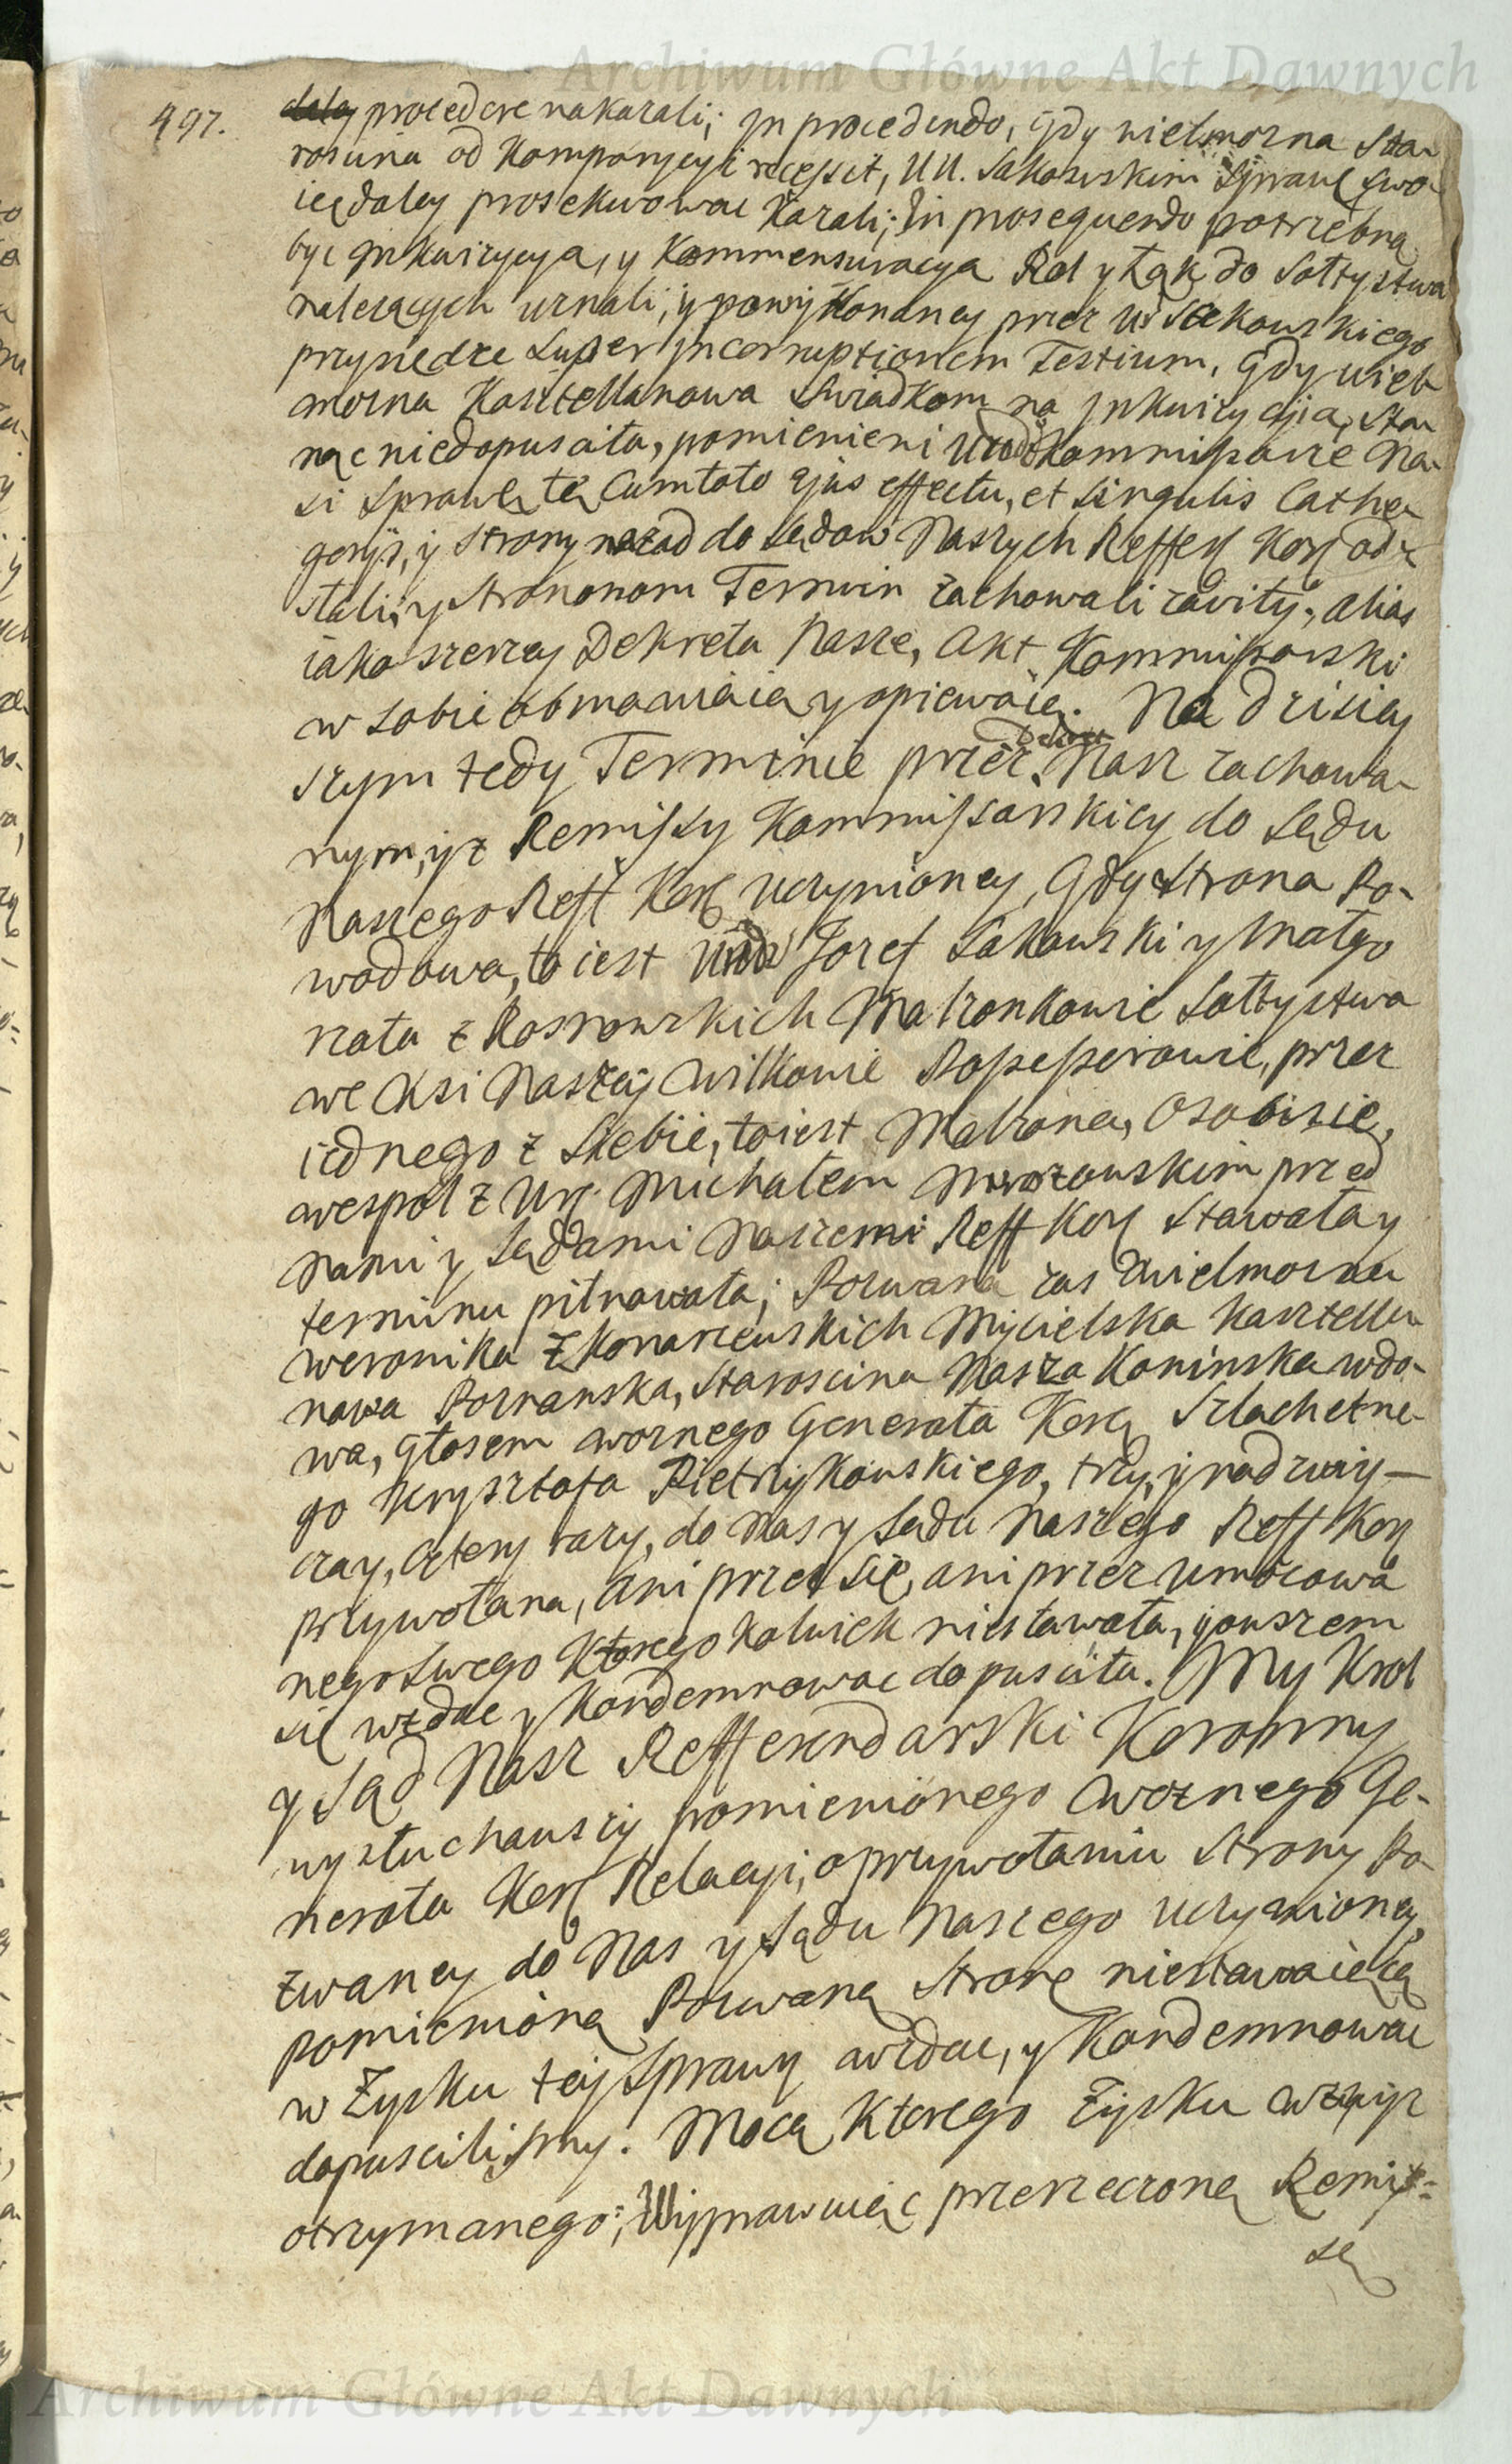 Archiwum Główne Akt Dawnych
497.
daley procedere nakazali; Jn procedendo, Gdy wielmozna Sta-
rościna od Kompozycyi recessit, UU. Sakowskim Sprawę Swo-
ię daley prosekwowac kazali; In prosequendo potrzebną
byc Jnkwizycyą, y Kommensuracyą Rol y Łąk do Sołtystwa
należących uznali, y po wykonaney przez Ur Sakowskiego
przysiędze Super Jncorruptionem Testium, Gdy wiel-
mozna Kasztellanowa Swiadkom na Jnkwizycyią Sta-
nąc niedopusciła, pomienieni Urodź Kommissarze Na-
si Sprawę tę Cum toto ejus effectu, et Singulis Cathe-
gorijs, y Strony nazad do Sądow Naszych Reffer Kor ode-
stali, y Stronom Termin zachowali zawity, alias
iako szerzey Dekreta Nasze, Akt Kommissarski
w Sobie obmawiaią y opiewaią. Na Dzisiey
szym tedy Terminie przez Dekret Nasz zachowa-
nym, y z Remissy Kommissarskiey do Sądu
Naszego Reff Kor uczynioney, Gdy Strona Po-
wodowa, to iest Urodź Jozef Sakowski y Małgo
rzata z Małzonkowie Sołtystwa
we Wsi Naszey Wilkowie przez
iednego z Siebie, to iest Małzona, Osobiscie,
wespoł z Ur. Michałem Mrozowskim przed
Nami y Sądami Naszemi Reff Kor Stawała y
terminu pilnowała; Pozwana zas Wielmozna
Weronika z Konarzewskich Mycielska Kasztella-
nowa Poznanska, Starościna Nasza Koninska wdo-
wa, Głosem Woznego Generała Kor Szlachetne-
go Krysztofa Pietrzykowskiego, trzy, y nadzwy-
czay, cztery razy, do Nas y Sądu Naszego Reff Kor
przywołana, ani przez się, ani przez umocowa
nego Swego ktoregokolwiek niestawała, y owszem
się wzdac y Kondemnowac dopusciła. My Krol
y Sąd Nasz Refferendarski Koronny
wysłuchawszy pomienionego Woznego Ge-
nerała Kor Relacyi, o przywołaniu Strony Po-
zwaney do Nas y Sądu Naszego uczynioney,
pomienioną Pozwaną Stronę niestawaiącą
w Zysku tey Sprawy wzdac, y Kondemnowac
dopuscilismy. Mocą Ktorego Zysku wzwysz
otrzymanego; Wyprawuiąc przerzeczoną Remis-
sę
Archiwum Główne Akt Dawnych